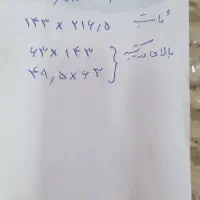 ثابت ۱۴۳ × ۲۱۶,۵
بالای ۶۳ × ۱۴۳
۴۸,۵ × ۶۳